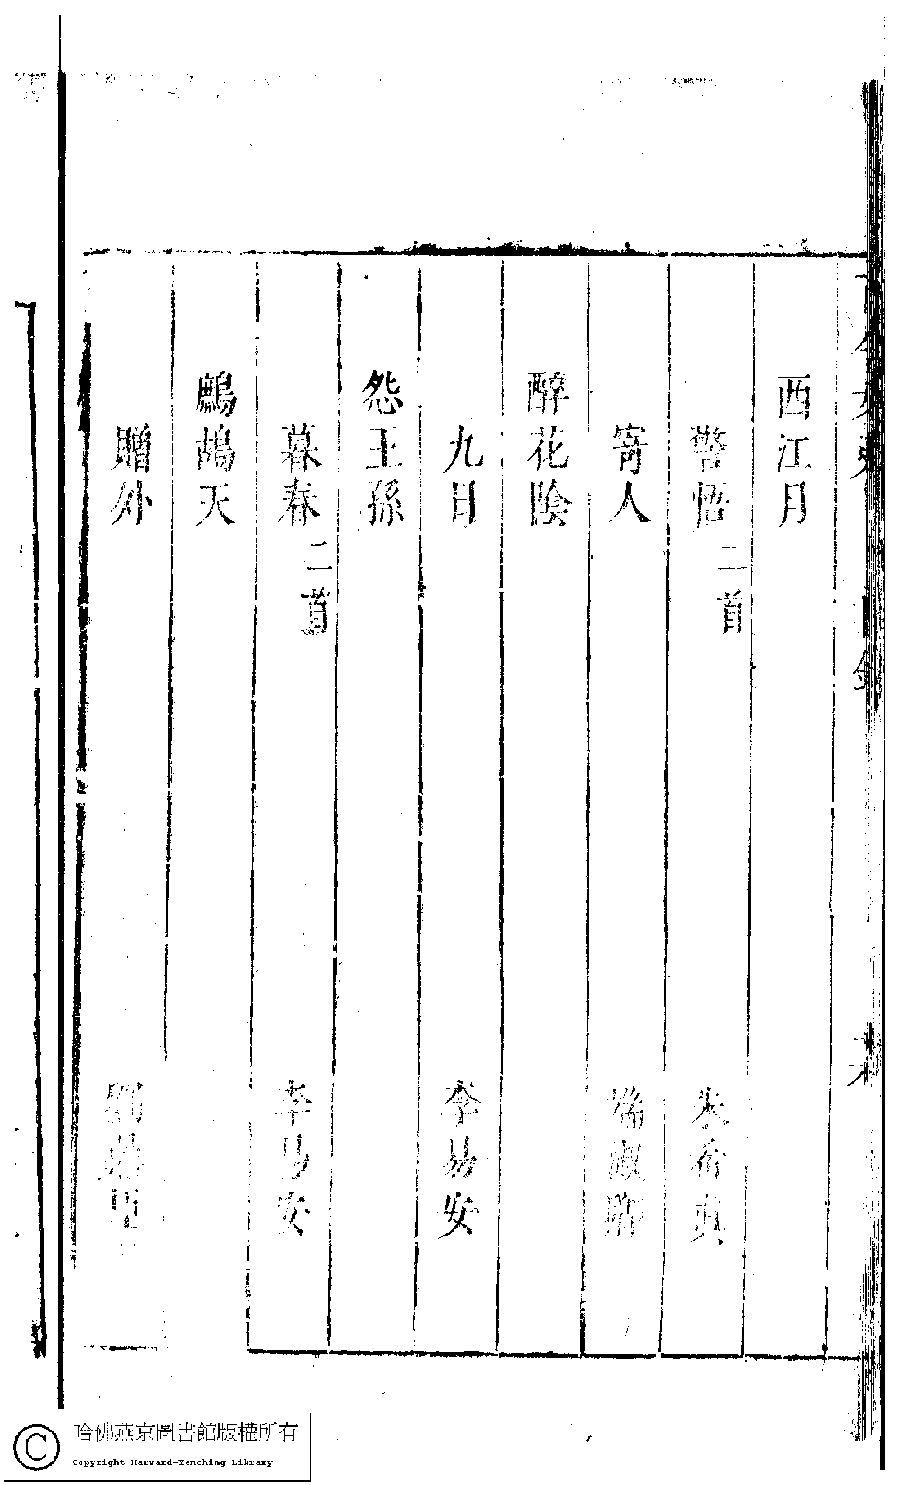 西江月
警悟二首 朱希真
寄人 端淑卿
醉花陰
九日 李易安
怨王孫
暮春二首 李易安
鷓鴣天
贈外
哈佛燕京圖書館版權所有
Copyright Harvard-Yenching Library